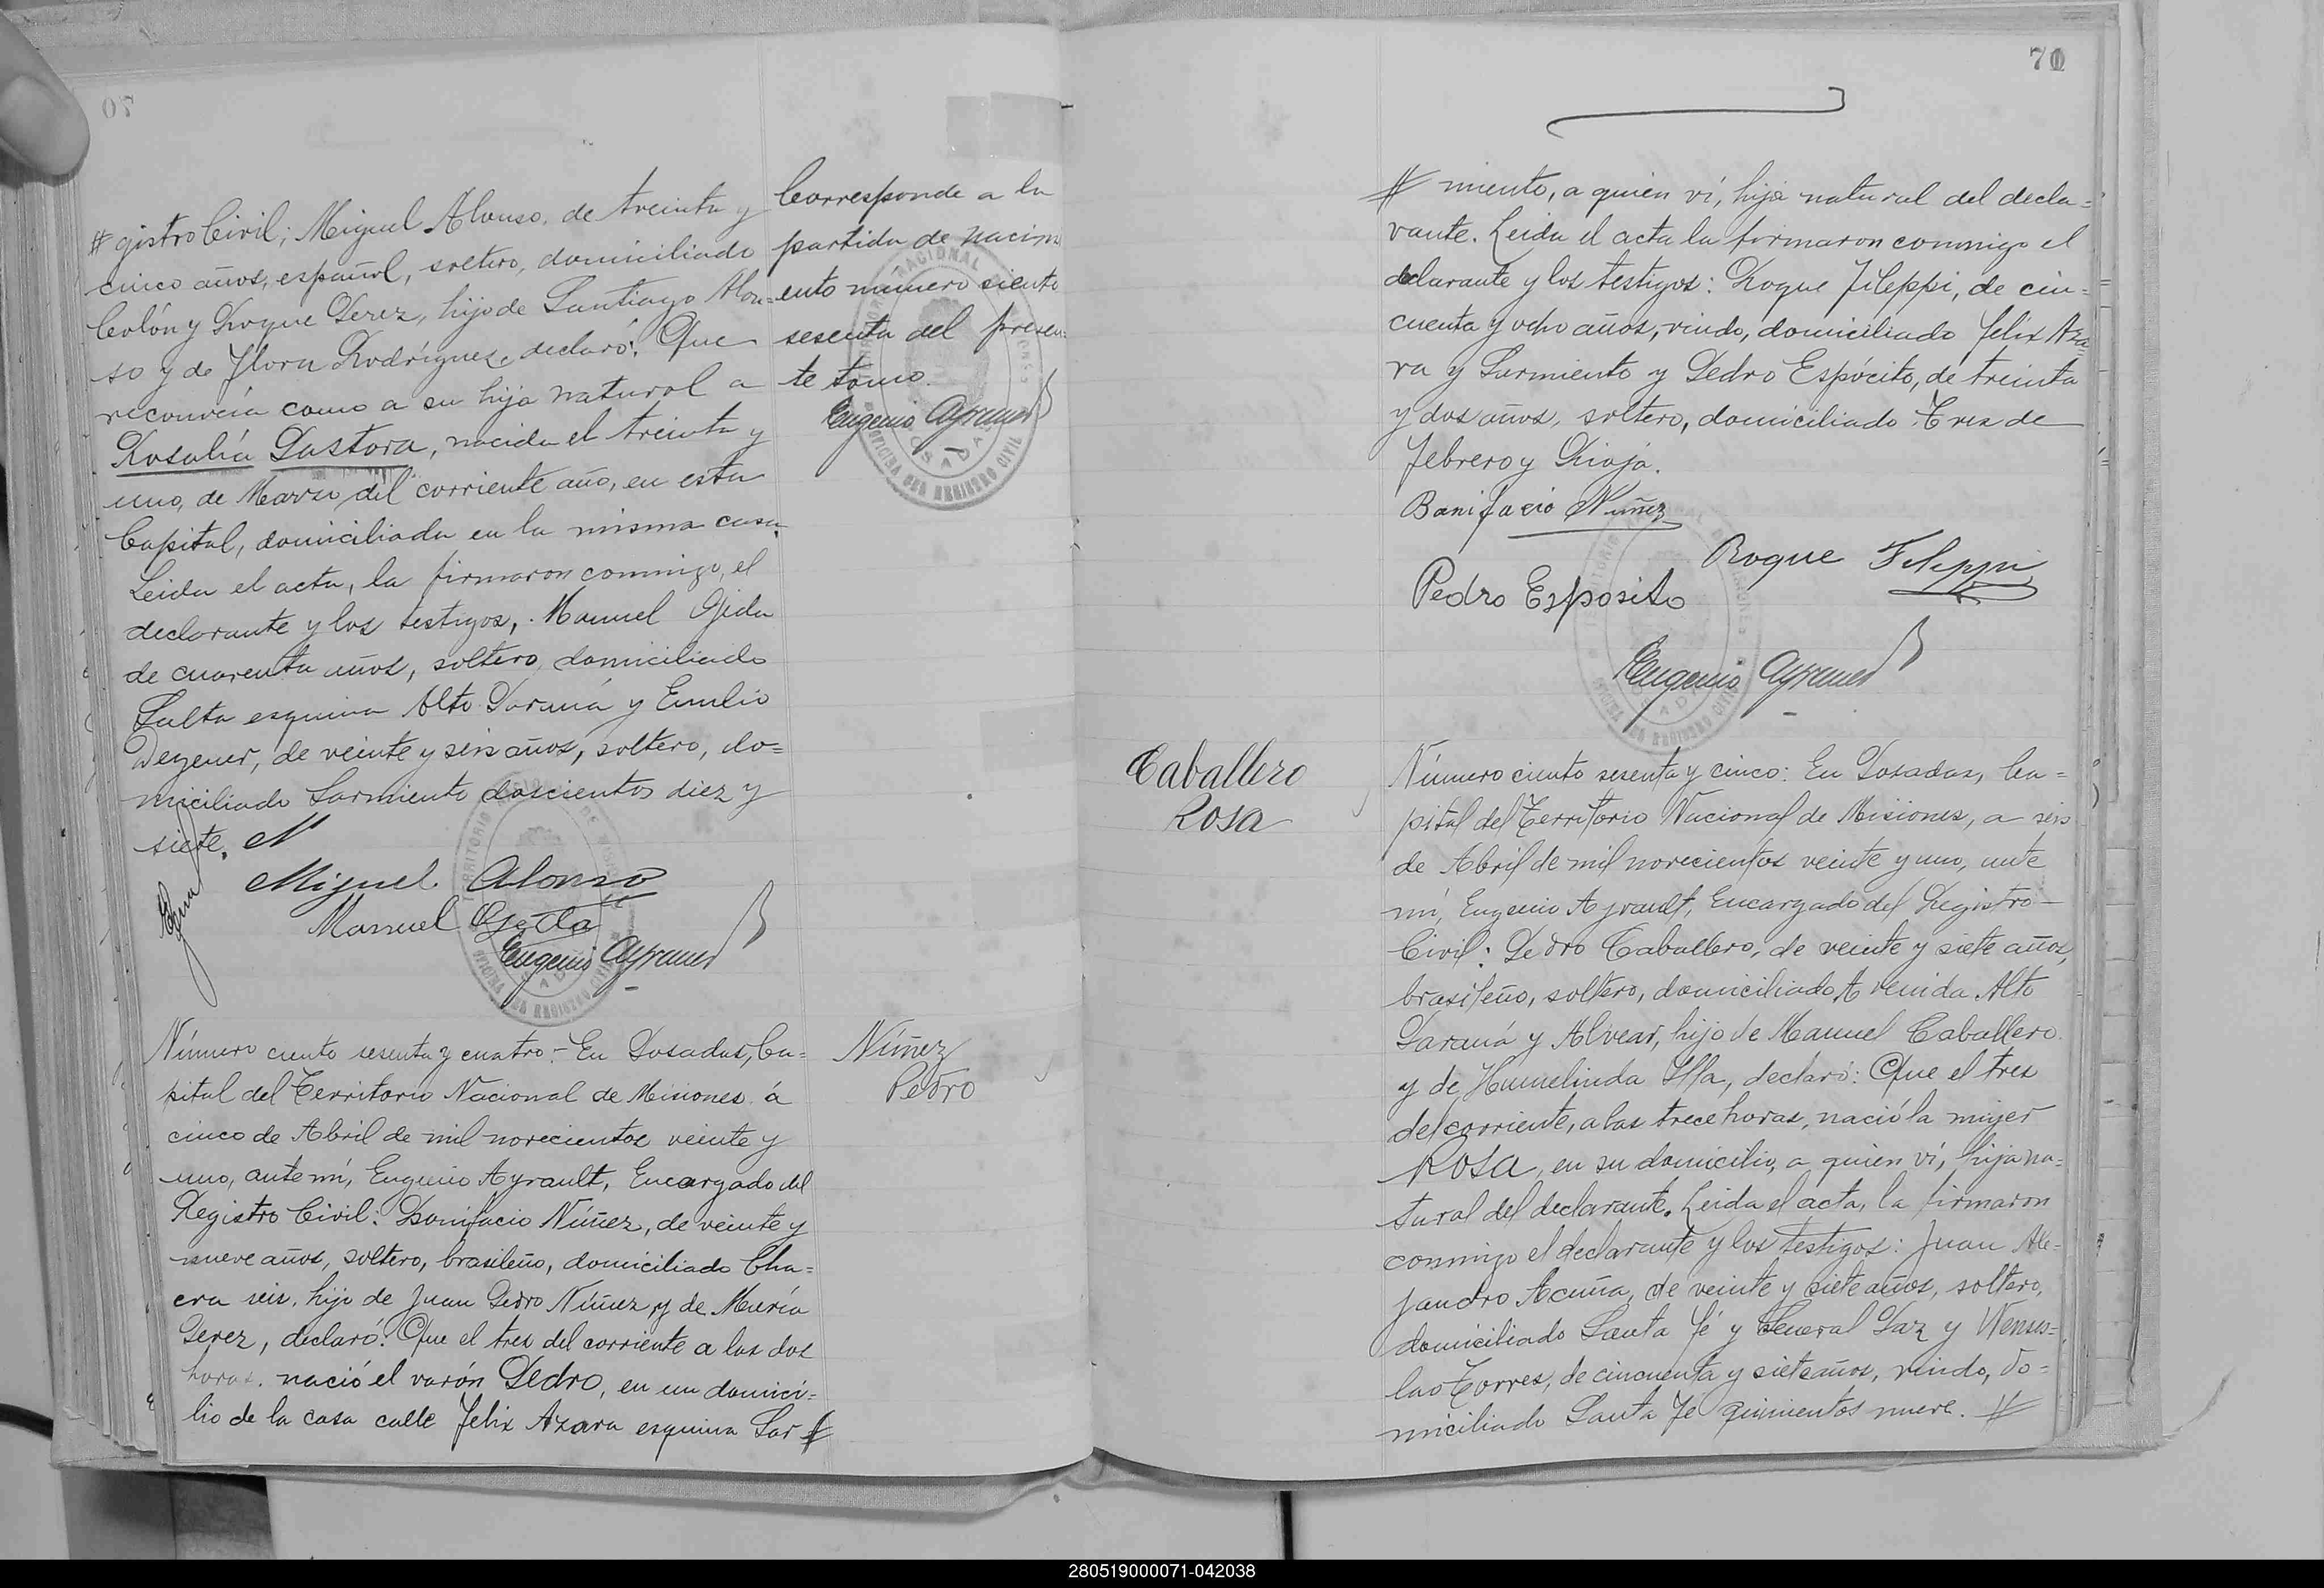 # gistro Civil; Miguel Alonso, de treinta y
cinco años, español, soltero, domiciliado
Colón y Roque Perez, hijo de Santiago Alon-
so y de Flora Rodríguez, declaró: Que
reconocía como a su hija natural a
Rosalía Pastora, nacida el treinta y
uno, de Marzo del corriente año, en esta
Capital, domiciliada en la misma casa.
Leida el acta, la firmaron conmigo, el
declarante y los testigos, Manuel Ojeda
de cuarenta años, soltero, domiciliado
Salta esquina Alto Paraná y Emilio
Wegener, de veinte y seis años, soltero, do=
miciliado Sarmiento doscientos diez y
siete.
Miguel Alonso
Manuel Ojeda
Eugenio Ayrault
Corresponde a la
partida de nacimi
ento número ciento
sesenta del presen=
te tomo.
Eugenio Ayrault
Número ciento sesenta y cuatro:- En Posadas, Ca=
pital del Territorio Nacional de Misiones á
cinco de Abril de mil novecientos veinte y
uno, ante mí, Eugenio Ayrault, Encargado del
Registro Civil: Bonifacio Núñez, de veinte y
nueve años, soltero, brasileño, domiciliado Cha=
cra seis, hijo de Juan Pedro Núñez y de María
Perez, declaró: Que el tres del corriente a las dos
horas, nació el varón Pedro, en un domici=
lio de la casa calle Felix Azara esquina Sar #
Núñez
Pedro
70
71
# miento, a quien ví, hijo natural del decla=
rante. Leida el acta la firmaron conmigo el
declarante y los testigos: Roque Fileppi, de cin=
cuenta y ocho años, viudo, domiciliado Felix Aza=
ra y Sarmiento y Pedro Espócito, de treinta
y dos años, soltero, domiciliado Tres de
Febrero y Rioja.
Banifacio Nuñez
Roque Fileppi
Pedro Esposito
Eugenio Ayrault
Caballero
Rosa
Número ciento sesenta y cinco: En Posadas, Ca=
pital del Territorio Nacional de Misiones, a seis
de Abril de mil novecientos veinte y uno, ante
mí, Eugenio Ayrault, Encargado del Registro
Civil: Pedro Caballero, de veinte y siete años,
brasileño, soltero, domiciliado Avenida Alto
Paraná y Alvear, hijo de Manuel Caballero
y de Humelinda Silla, declaró: Que el tres
del corriente, a las trece horas, nació la mujer
ROSA, en su domicilio, a quien ví, hija na=
tural del declarante. Leida el acta, la firmaron
conmigo el declarante y los testigos: Juan Ale=
jandro Acuña, de veinte y siete años, soltero,
domiciliado Santa Fé y General Paz y Wenses=
lao Torres, de cincuenta y siete años, viudo, do=
miciliado Santa Fé quinientos nueve. #
280519000071-042038